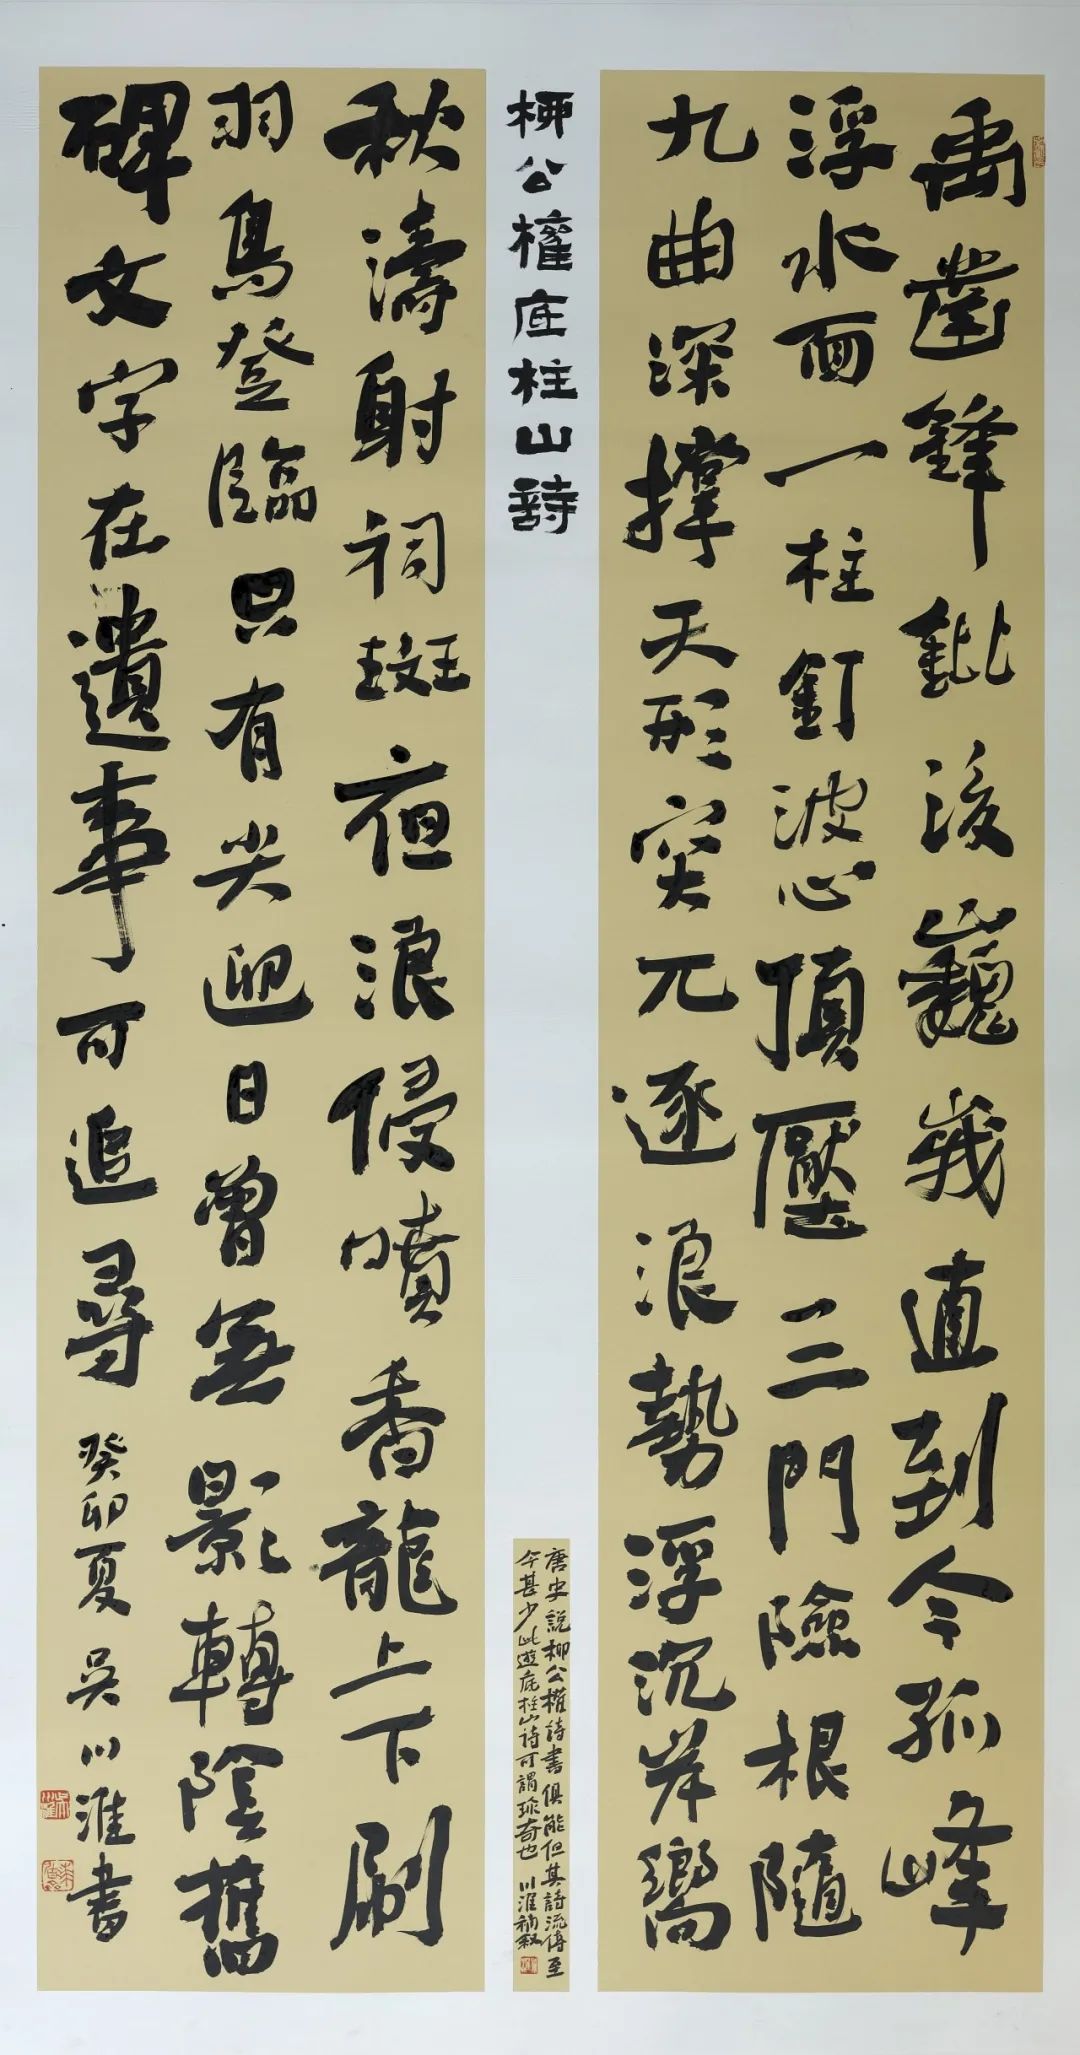 禹鑿鋒鈚後巍峩直到今孤峰
浮水面一柱釘波心頂壓三門險根隨
九曲深撑天形突兀逐浪勢浮沉岸嚮
柳公權底柱山詩
唐史說柳公權詩書俱能但其詩流傳至
今甚少此遊底柱山詩可謂珍奇也 川淮補叙
秋濤射祠斑夜浪侵噴香龍上下刷
羽鳥登臨只有尖迎日曾無影轉陰舊
碑文字在遺事可追尋 癸卯夏 吳川淮書